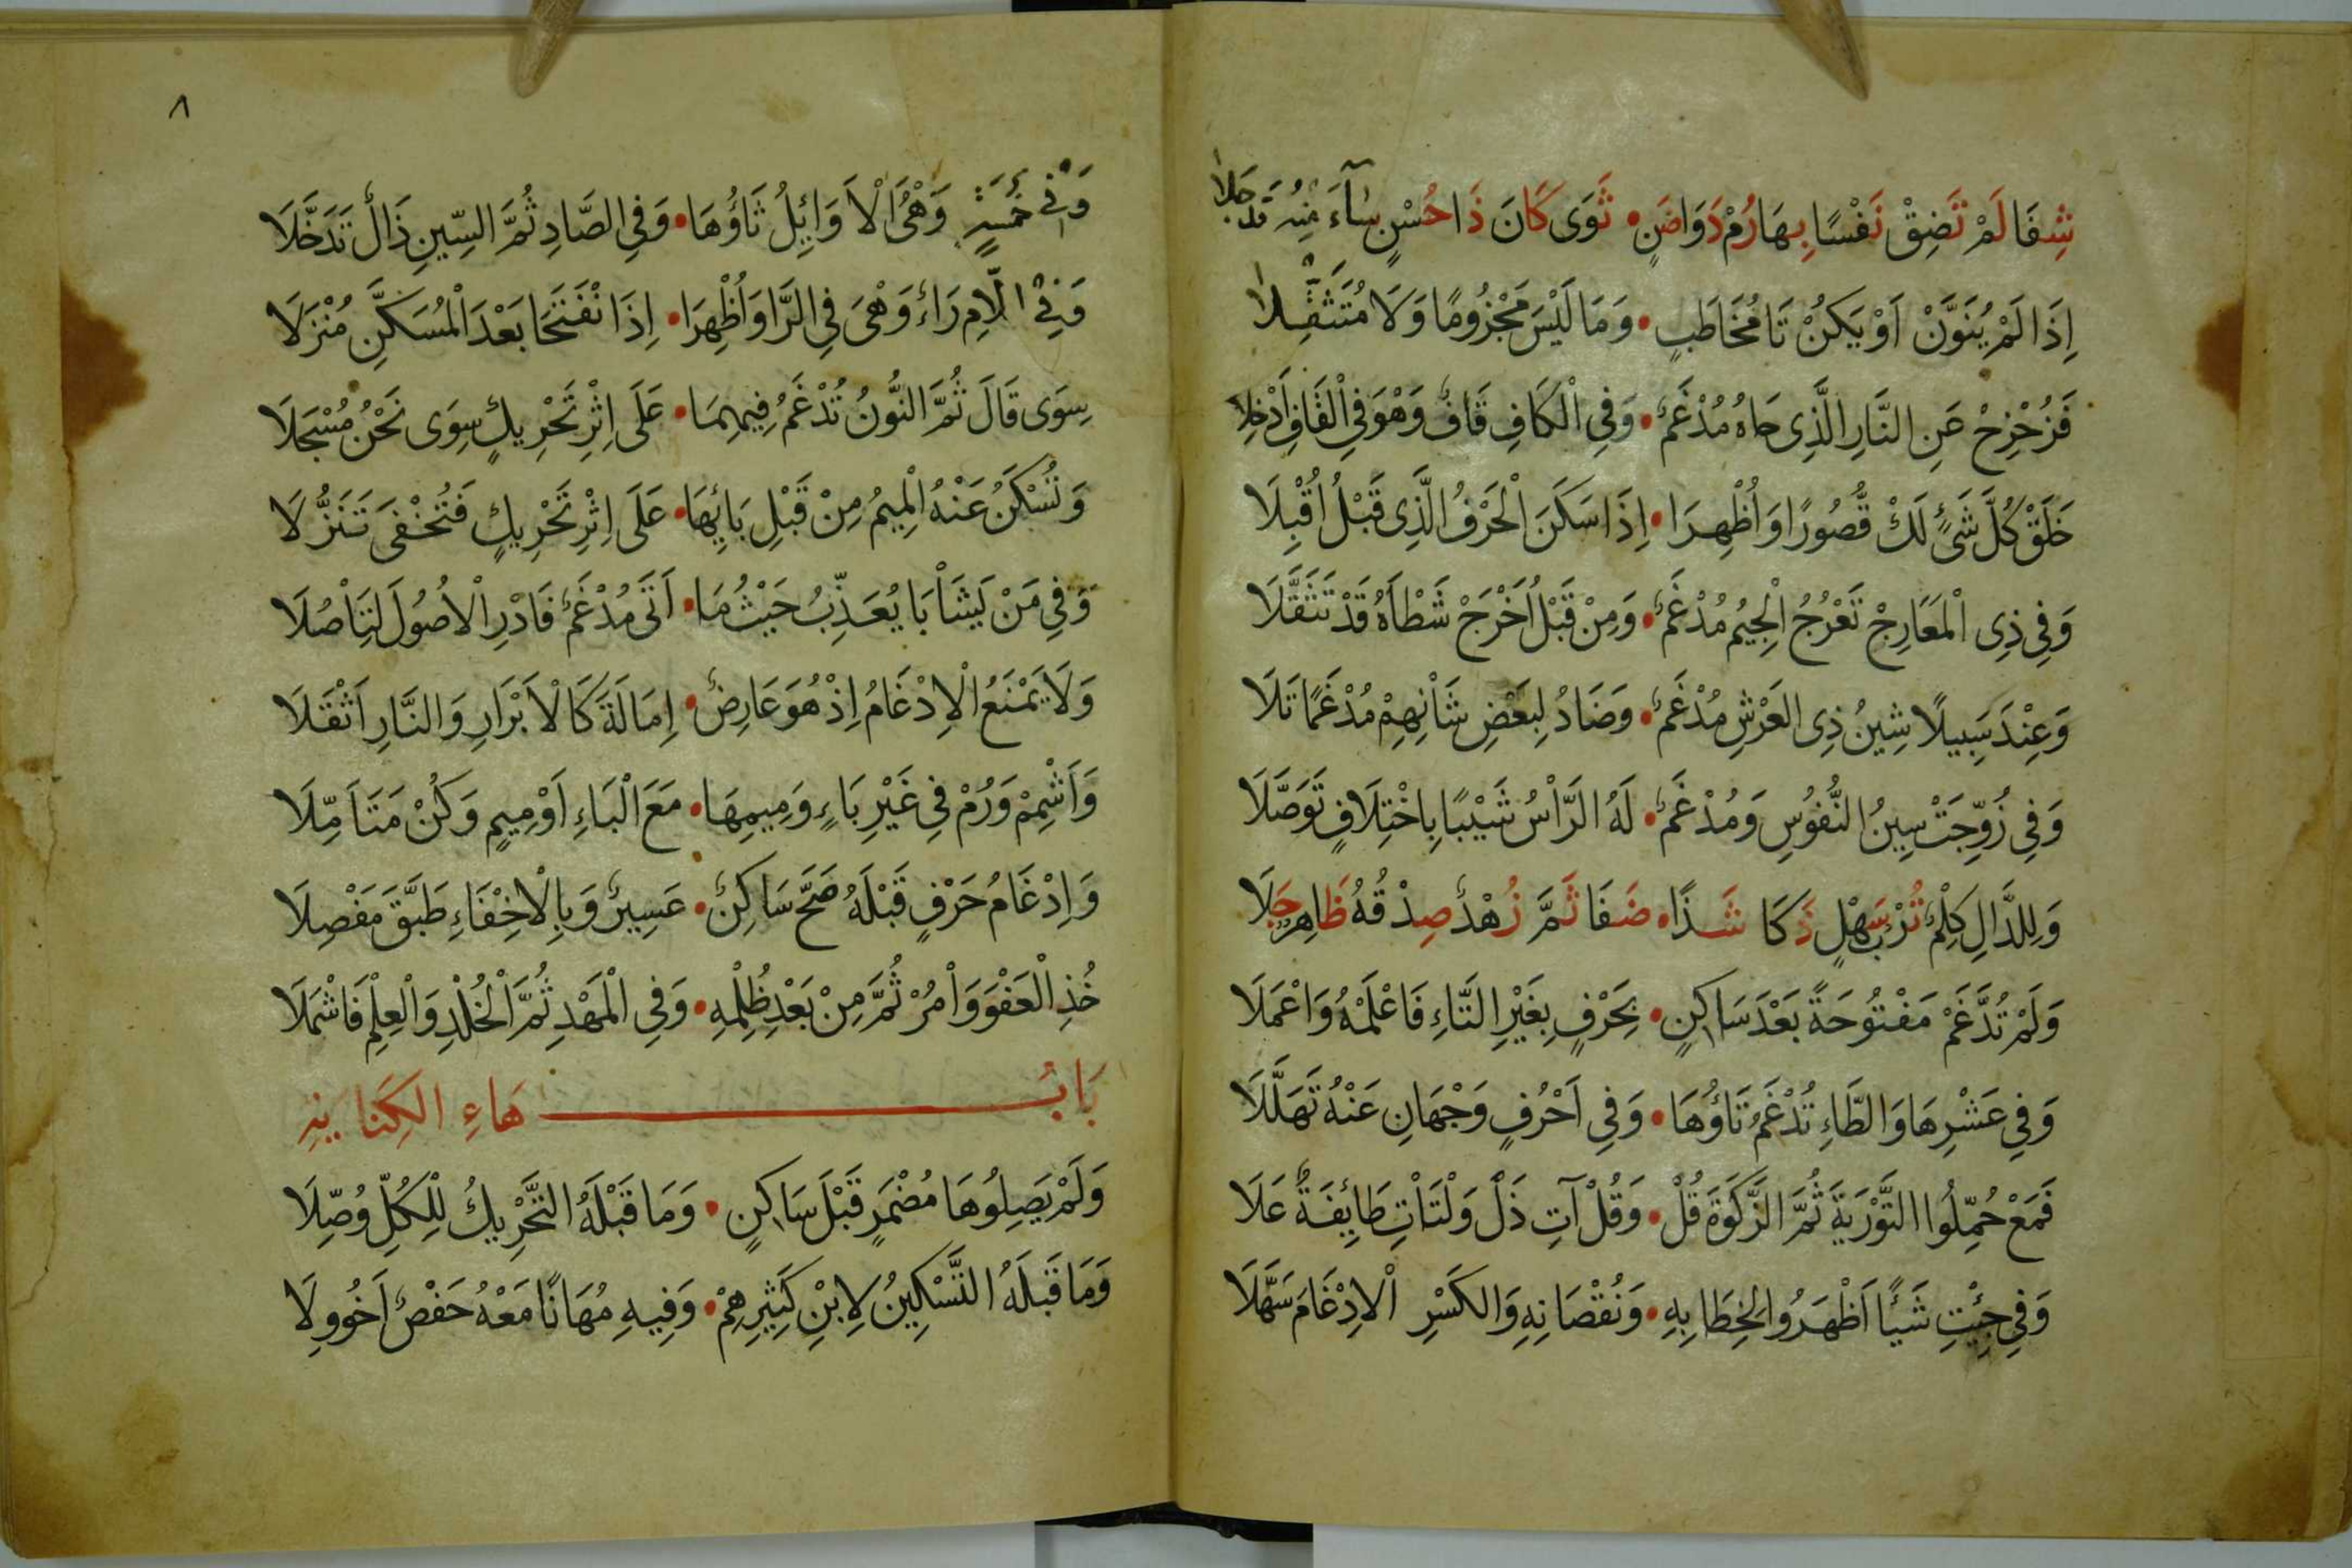 شِفَا لَمْ تَضِقْ نَفْسًا بِهَا رُمْ دَوَاضَنٍ • ثَوَى كَانَ ذَا حُسْنٍ سَآءَ مِنْهُ قَدْ جَلَا
اِذَا لَمْ يُنَوَّنْ اَوْ يَكُنْ تَا مُخَاطَبٍ • وَمَا لَيْسَ مَجْزُومًا وَلَا مُتَثَقِّلَا
فَزُحْزِحْ عَنِ النَّارِ الَّذِى حَاهُ مُدْغَمٌ • وَفِى الْكَافِ قَافٌ وَهْوَ فِى الْقَافِ اَدْخِلَا
خَلَقْ كُلَّ شَىْءٍ لَكْ قُّصُورًا وَاُظْهِرَا • اِذَا سَكَنَ الْحَرْفُ الَّذِى قَبْلُ اُقْبِلَا
وَفِى ذِى الْمَعَارِجْ تَعْرُجُ الْجِيمُ مُدْغَمٌ • وَمِنْ قَبْلُ اَخْرَجْ شَطْأَهُ قَدْ تَثَقَّلَا
وَعِنْدَ سَبِيلًا شِينُ ذِى العَرْشِ مُدْغَمٌ • وَضَادُ لِبَعْضِ شَاْنِهِمْ مُدْغَمًا تَلَا
وَفِى زُوِّجَتْ سِينُ النُّفُوسِ وَمُدْغَمٌ • لَهُ الرَّاْسُ شَيْبًا بِاخْتِلَافٍ تَوَصَّلَا
وَلِلدَّالِ كِلْمٌ تُرْبُ سَهْلٍ ذَكَا شَذًا • ضَفَا ثَمَّ زُهْدٌ صِدْقُهُ ظَاهِرٌ جَلَا
وَلَمْ تُدَّغَمْ مَفْتُوحَةً بَعْدَ سَاكِنٍ • بِحَرْفٍ بِغَيْرِ التَّاءِ فَاعْلَمْهُ وَاعْمَلَا
وَفِى عَشْرِهَا وَالطَّاءِ تُدْغَمُ تَاؤُهَا • وَفِى اَحْرُفٍ وَجْهَانِ عَنْهُ تَهَلَّلَا
فَمَعْ حُمِّلُوا التَّوْرَيةَ ثُمَّ الزَّكَوةَ قُلْ • وَقُلْ آتِ ذَلْ وَلْتَاْتِ طَائِفَةٌ عَلَا
وَفِى جِئْتِ شَيْئًا اَظْهَرُوا لِخِطَابِهِ • وَنُقْصَانِهِ وَالكَسْرِ الْاِدْغَامَ سَهَّلَا
٨
وَفِى خَمْسَةٍ وَهْىَ الْاَوَائِلُ ثَاؤُهَا • وَفِى الصَّادِ ثُمَّ السِّينِ ذَالٌ تَدَخَّلَا
وَفِى اللَّامِ رَاءٌ وَهْىَ فِى الرَّا وَاُظْهِرَا • اِذَا نْفَتَحَا بَعْدَ الْمُسَكَّنِ مُنْزَلَا
سِوَى قَالَ ثُمَّ النُّونُ تُدْغَمُ فِيهِمَا • عَلَى اِثْرِ تَحْرِيكٍ سِوَى نَحْنُ مُسْجَلَا
وَتُسْكَنُ عَنْهُ الْمِيمُ مِنْ قَبْلِ بَائِهَا • عَلَى اِثْرِ تَحْرِيكٍ فَتُخْفَى تَنَزُّلَا
وَفِى مَنْ يَشَاْ بَا يُعَذِّبُ حَيْثُ مَا • اَتَى مُدْغَمٌ فَادْرِ الْاُصُولَ لِتَاْصُلَا
وَلَا يَمْنَعُ الْاِدْغَامُ اِذْ هُوَ عَارِضٌ • اِمَالَةَ كَالْاَبْرَارِ وَالنَّارِ اَثْقَلَا
وَاَشْمِمْ وَرُمْ فِى غَيْرِ بَاءٍ وَمِيمِهَا • مَعَ الْبَاءِ اَوْ مِيمٍ وَكُنْ مَتَاَمِّلَا
وَاِدْغَامُ حَرْفٍ قَبْلَهُ صَحَّ سَاكِنٌ • عَسِيرٌ وَبِالْاِخْفَاءِ طَبَّقَ مَفْصِلَا
خُذِ الْعَفْوَ وَاْمُرْ ثُمَّ مِنْ بَعْدِ ظُلْمِهِ • وَفِى الْمَهْدِ ثُمَّ الْخُلْدِ وَالْعِلْمِ فَاشْمَلَا
بَابُ هَاءِ الكِنَايَةِ
وَلَمْ يَصِلُوا هَا مُضْمَرٍ قَبْلَ سَاكِنٍ • وَمَا قَبْلَهُ التَّحْرِيكُ لِلْكُلِّ وُصِّلَا
وَمَا قَبْلَهُ التَّسْكِينُ لِابْنِ كَثِيرِهِمْ • وَفِيهِ مُهَانًا مَعْهُ حَفْصٌ اَخُو وِلَا